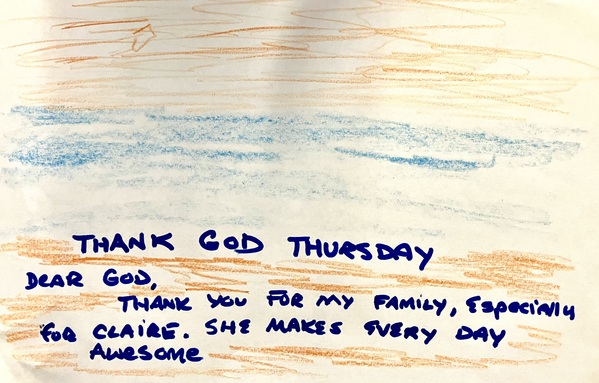 THANK GOD THURSDAY
DEAR GOD,
THANK YOU FOR MY FAMILY, ESPECIALLY
FOR CLAIRE. SHE MAKES EVERY DAY
AWESOME